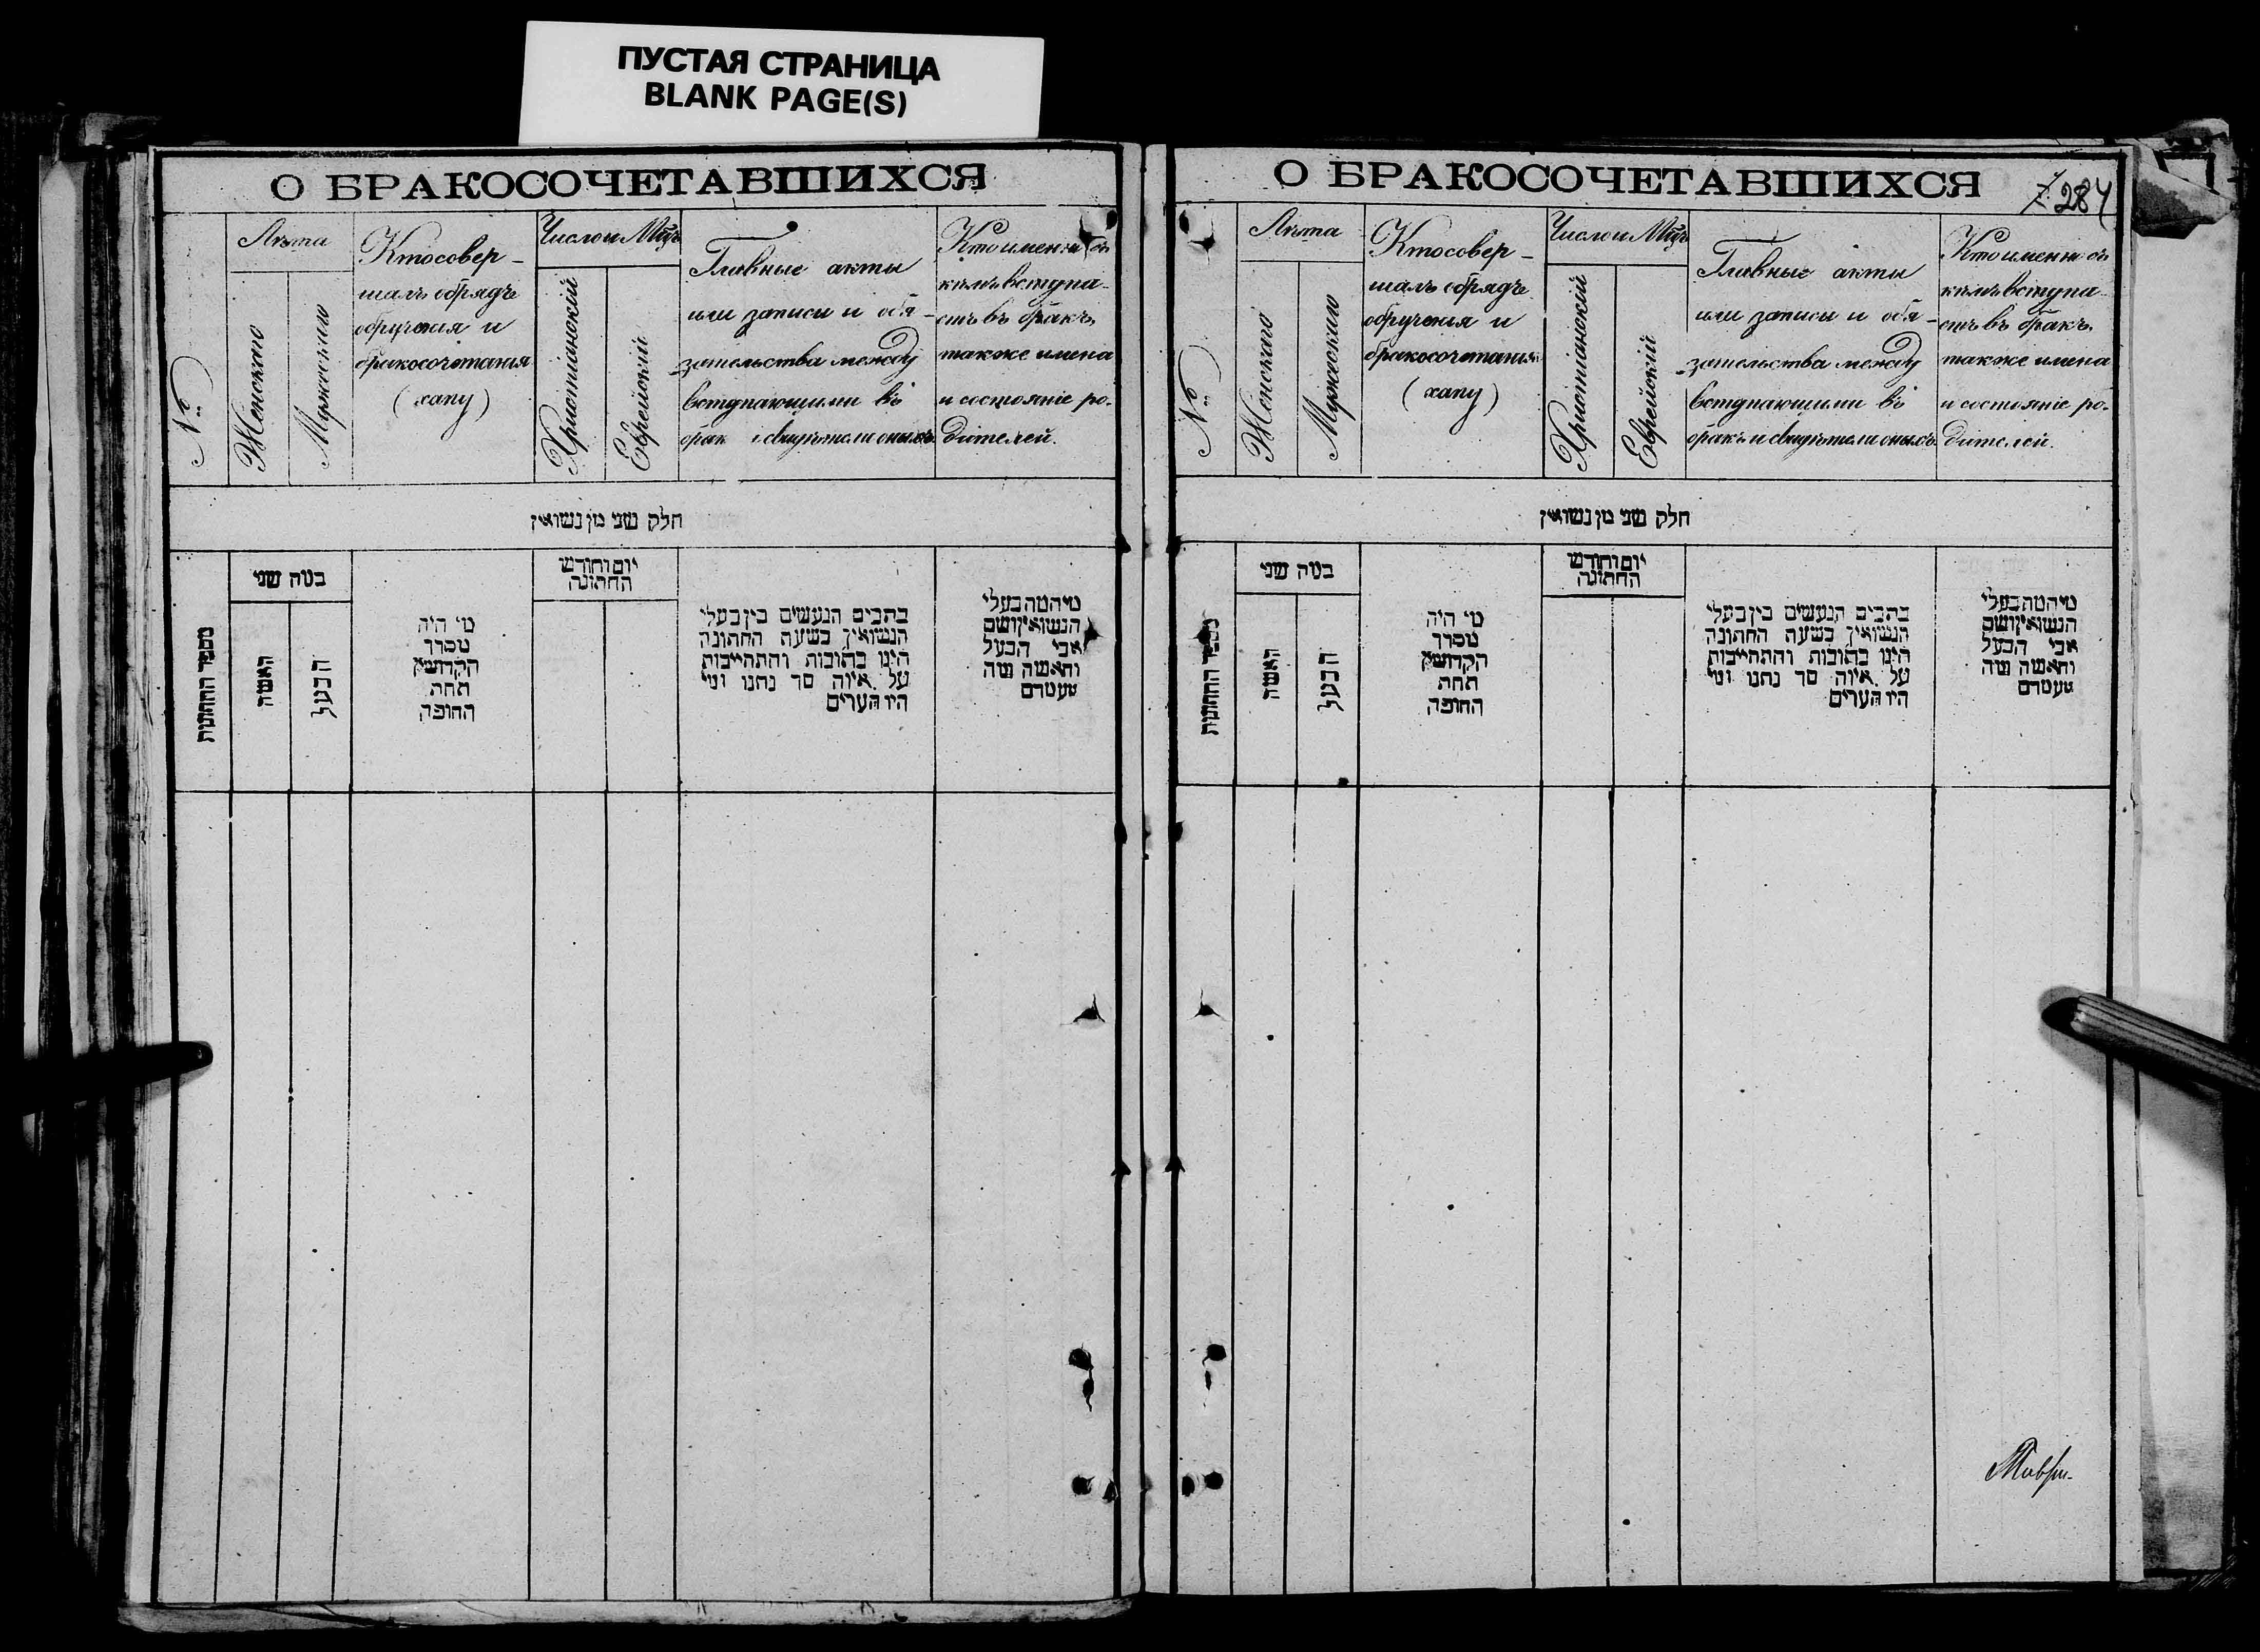 ПУСТАЯ СТРАНИЦА
BLANK PAGE(S)
О БРАКОСОЧЕТАВШИХСЯ
№
Лѣта
Женскаго
Мужескаго
Кто совер-
шалъ обрядъ
обрученія и
бракосочетанія
(хапу)
Число и Мѣц
Христіанскій
Еврейскій
Главные акты
или записи и обя-
зательства между
вступающими въ
брак и свидѣтели оныхъ
Кто именно съ
кѣмъ вступа-
етъ въ бракъ,
также имена
и состояніе ро-
дителей.
חלק שני מן נשואין
מספר החתונות
במה שני
האשה
הבעל
מי היה
מסדר
הקדושין
תחת
החופה
יום וחודש
החתונה
כתבים הנעשים בין בעלי
הנשואין בשעת החתונה
היינו כתובות והתחייבות
על איזה סך נתנו ומי
היו העדים
מי המה בעלי
הנשואין ושם
אבי הבעל
והאשה ומה
מעמדם
О БРАКОСОЧЕТАВШИХСЯ
284
№
Лѣта
Женскаго
Мужескаго
Кто совер-
шалъ обрядъ
обрученія и
бракосочетанія
(хапу)
Число и Мѣц
Христіанскій
Еврейскій
Главные акты
или записи и обя-
зательства между
вступающими въ
бракъ и свидѣтели оныхъ
Кто именно съ
кѣмъ вступа-
етъ въ бракъ,
также имена
и состояніе ро-
дителей.
חלק שני מן נשואין
מספר החתונות
במה שני
האשה
הבעל
מי היה
מסדר
הקדושין
תחת
החופה
יום וחודש
החתונה
כתבים הנעשים בין בעלי
הנשואין בשעת החתונה
היינו כתובות והתחייבות
על איזה סך נתנו ומי
היו העדים
מי המה בעלי
הנשואין ושם
אבי הבעל
והאשה ומה
מעמדם